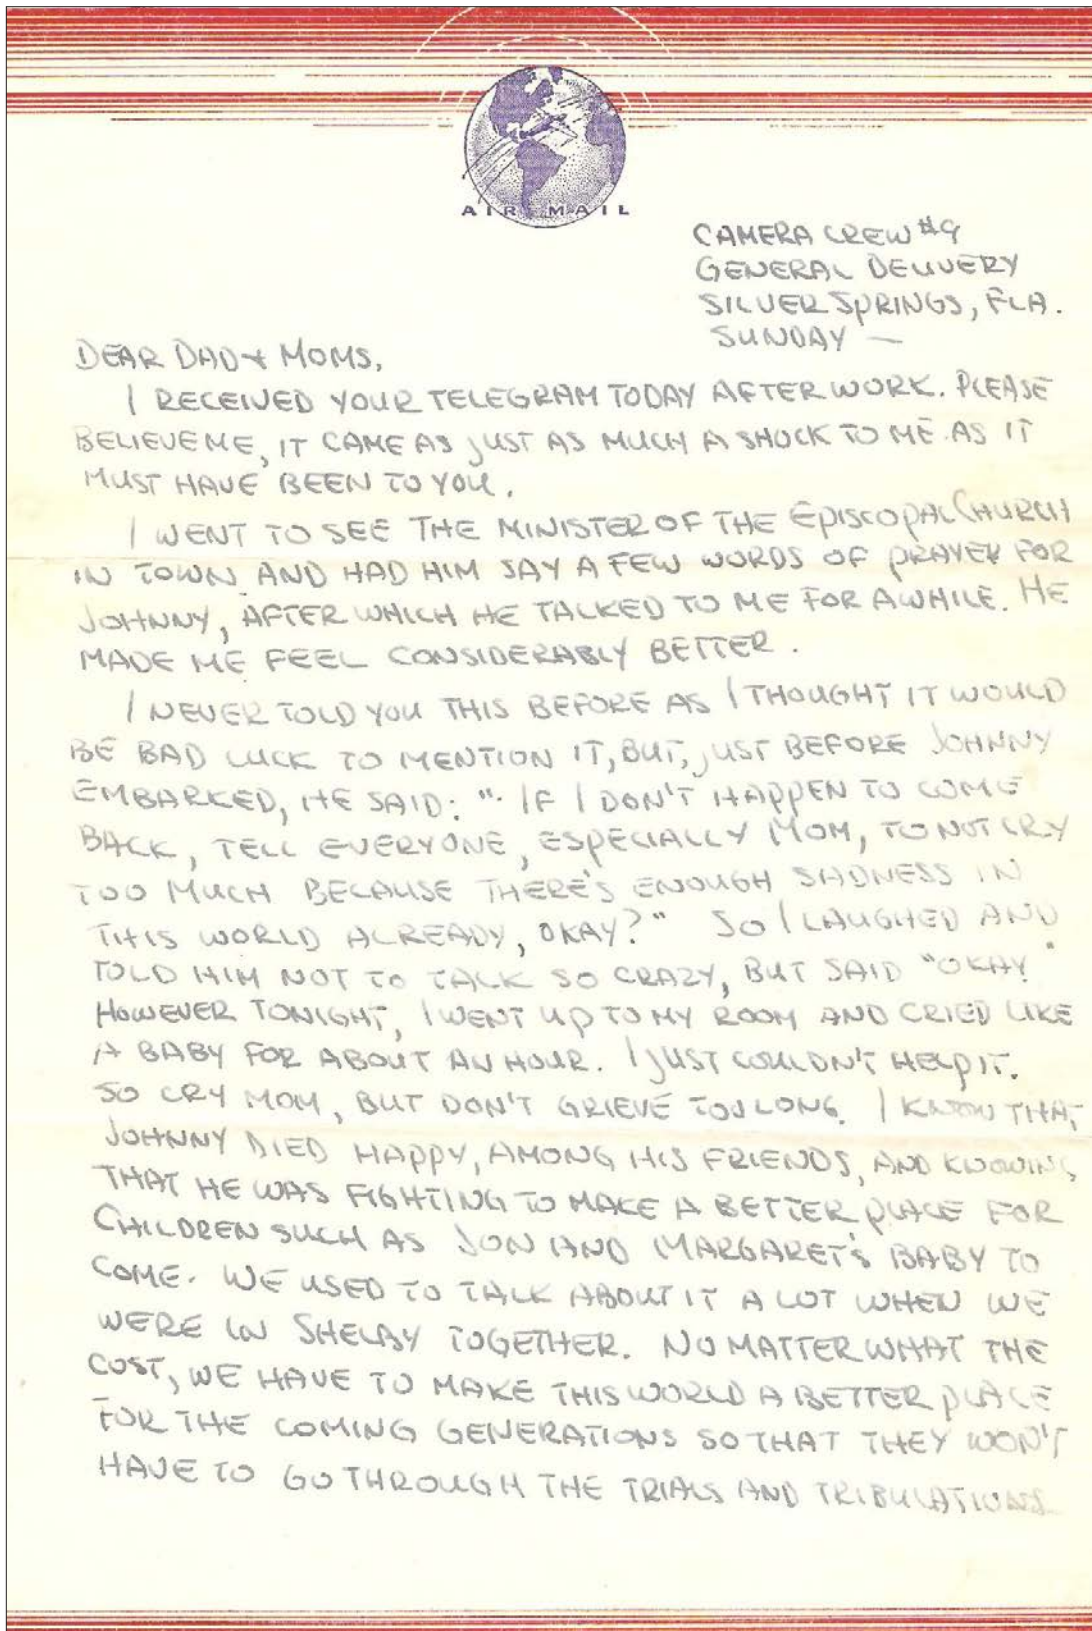 AIR MAIL
CAMERA CREW #9
GENERAL DELIVERY
SILVER SPRINGS, FLA.
SUNDAY —
DEAR DAD & MOMS,
I RECEIVED YOUR TELEGRAM TODAY AFTER WORK. PLEASE
BELIEVE ME, IT CAME AS JUST AS MUCH A SHOCK TO ME AS IT
MUST HAVE BEEN TO YOU.
I WENT TO SEE THE MINISTER OF THE EPISCOPAL CHURCH
IN TOWN AND HAD HIM SAY A FEW WORDS OF PRAYER FOR
JOHNNY, AFTER WHICH HE TALKED TO ME FOR AWHILE. HE
MADE ME FEEL CONSIDERABLY BETTER.
I NEVER TOLD YOU THIS BEFORE AS I THOUGHT IT WOULD
BE BAD LUCK TO MENTION IT, BUT, JUST BEFORE JOHNNY
EMBARKED, HE SAID: "IF I DON'T HAPPEN TO COME
BACK, TELL EVERYONE, ESPECIALLY MOM, TO NOT CRY
TOO MUCH BECAUSE THERE'S ENOUGH SADNESS IN
THIS WORLD ALREADY, OKAY?" SO I LAUGHED AND
TOLD HIM NOT TO TALK SO CRAZY, BUT SAID "OKAY."
HOWEVER TONIGHT, I WENT UP TO MY ROOM AND CRIED LIKE
A BABY FOR ABOUT AN HOUR. I JUST COULDN'T HELP IT.
SO CRY MOM, BUT DON'T GRIEVE TOO LONG. I KNOW THAT
JOHNNY DIED HAPPY, AMONG HIS FRIENDS, AND KNOWING
THAT HE WAS FIGHTING TO MAKE A BETTER PLACE FOR
CHILDREN SUCH AS JON AND MARGARET'S BABY TO
COME. WE USED TO TALK ABOUT IT A LOT WHEN WE
WERE IN SHELBY TOGETHER. NO MATTER WHAT THE
COST, WE HAVE TO MAKE THIS WORLD A BETTER PLACE
FOR THE COMING GENERATIONS SO THAT THEY WON'T
HAVE TO GO THROUGH THE TRIALS AND TRIBULATIONS